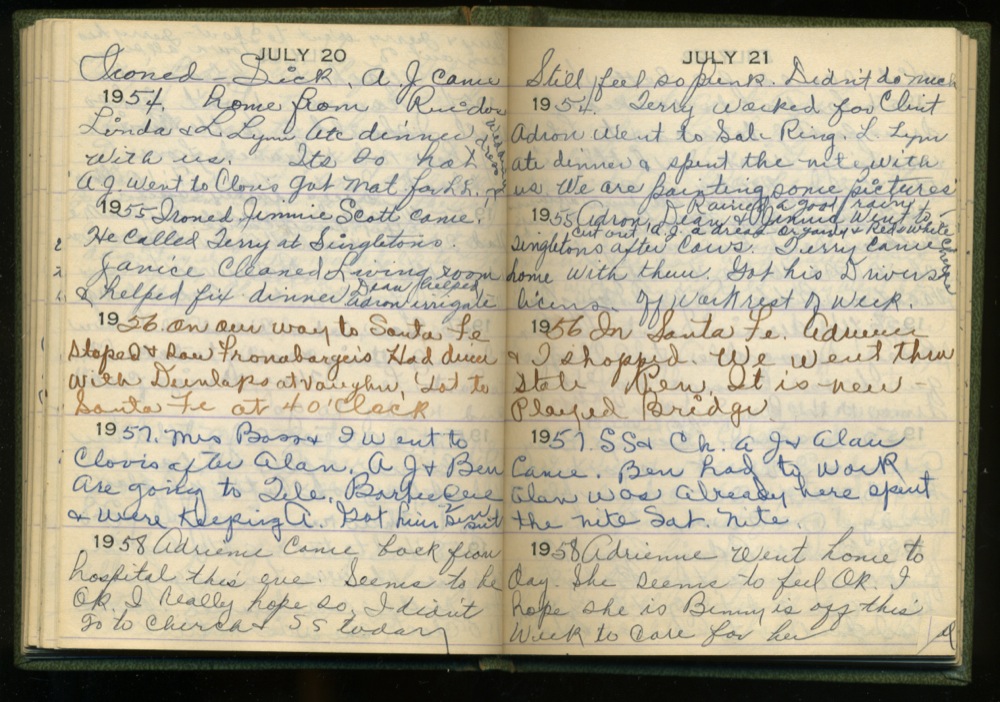 JULY 20
Ironed - Sick. A J came
1954. home from Ruidoso
Linda & L. Lynn ate dinner
with us. Its so hot
A J went to Clovis got mat for
1955 Ironed Jimmie Scott came.
He called Terry at Singletons.
Janice Cleaned Living room
& helped fix dinner Dean helped
Adron irrigate
1956. On our way to Santa Fe
stoped & saw Fronabargers Had dinner
with Dunlaps at Vaughn. Got to
Santa Fe at 4 O'Clock
1957. Mrs Bass & I went to
Clovis after Alan. A J & Ben
are going to Tele. Barbecue
& were keeping A. Got him
1958 Adrienne came back from
hospital this eve. Seems to be
OK. I really hope so, I didn't
go to Church & SS today
JULY 21
Still feel so punk. Didn't do much
1954. Terry worked for Clint
Adron went to Sale Ring. L. Lynn
ate dinner & spent the nite with
us. We are painting some pictures
Rained a good rain
1955 Adron, Dean & Jimmie went to
cut out A.J. a dress organdy & Red & White
Singletons after cows. Terry came
home with them. Got his Drivers
licens. off work rest of week.
1956 In Santa Fe. Adrienne
& I shopped. We went thru
State Pen. It is new -
Played Bridge
1957. SS & Ch. A J & Alan
Came. Ben had to work
Alan was already here spent
the nite Sat. nite.
1958 Adrienne went home to
day. She seems to feel OK. I
hope she is Benny is off this
week to care for her